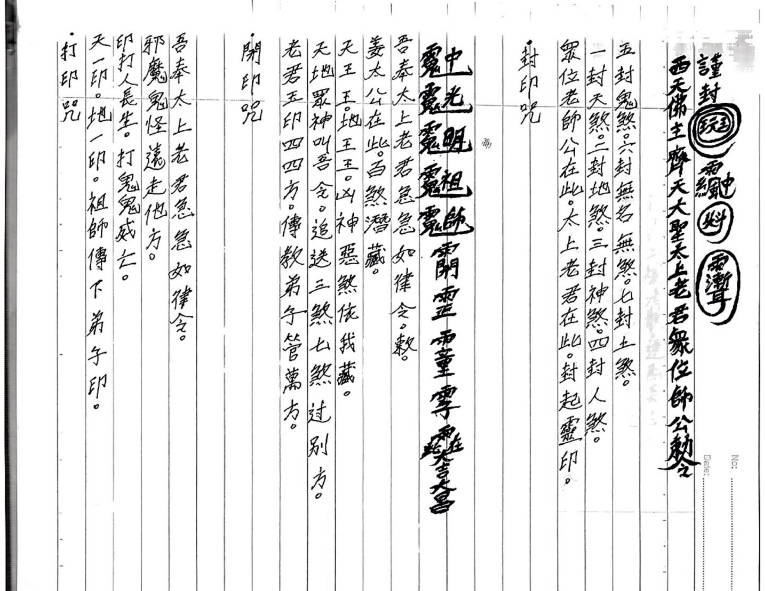 ·打印咒
天一印。地一印。祖師傳下弟子印。
印打人長生。打鬼鬼滅亡。
邪魔鬼怪遠走他方。
吾奉太上老君急急如律令。
·開印咒
老君玉印四四方。傳教弟子管萬方。
天地眾神叫吾令。追送三煞七煞过别方。
天王王。地王王。凶神惡煞依我藏。
姜太公在此。百煞潛藏。
吾奉太上老君急急如律令。敕。
中光明祖師 在此大吉大昌
·封印咒
眾位老師公在此。太上老君在此。封起靈印。
一封天煞。二封地煞。三封神煞。四封人煞。
五封鬼煞。六封無名無煞。七封土煞。
西天佛主齊天大聖太上老君眾位師公勅令
謹封
No:
Date: